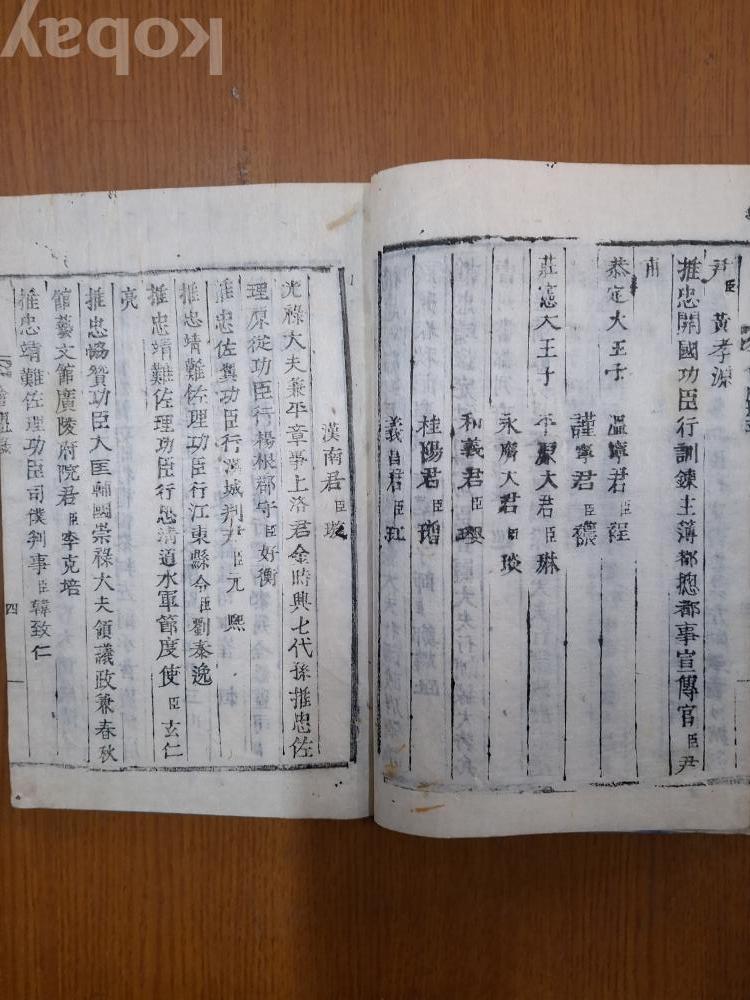 Kobay
尹臣 黃孝源
推忠開國功臣行訓鍊主簿都摠都事宣傳官臣尹
甫
恭定大王子 溫寧君臣裎
謹寧君臣禯
莊憲大王子 平原大君臣琳
永膺大君臣琰
和義君臣瓔
桂陽君臣璔
義昌君臣玒
漢南君臣
光祿大夫兼平章事上洛君金時興七代孫推忠佐
理原從功臣行楊根郡守臣好衡
推忠佐翼功臣行漢城判尹臣元㷩
推忠靖難佐理功臣行江東縣令臣劉泰逸
推忠靖難佐理功臣行忠淸道水軍節度使臣玄仁
亮
推忠協贊功臣大匡輔國崇祿大夫領議政兼春秋
館藝文館廣陵府院君臣李克培
推忠靖難佐理功臣司僕判事臣韓致仁
四